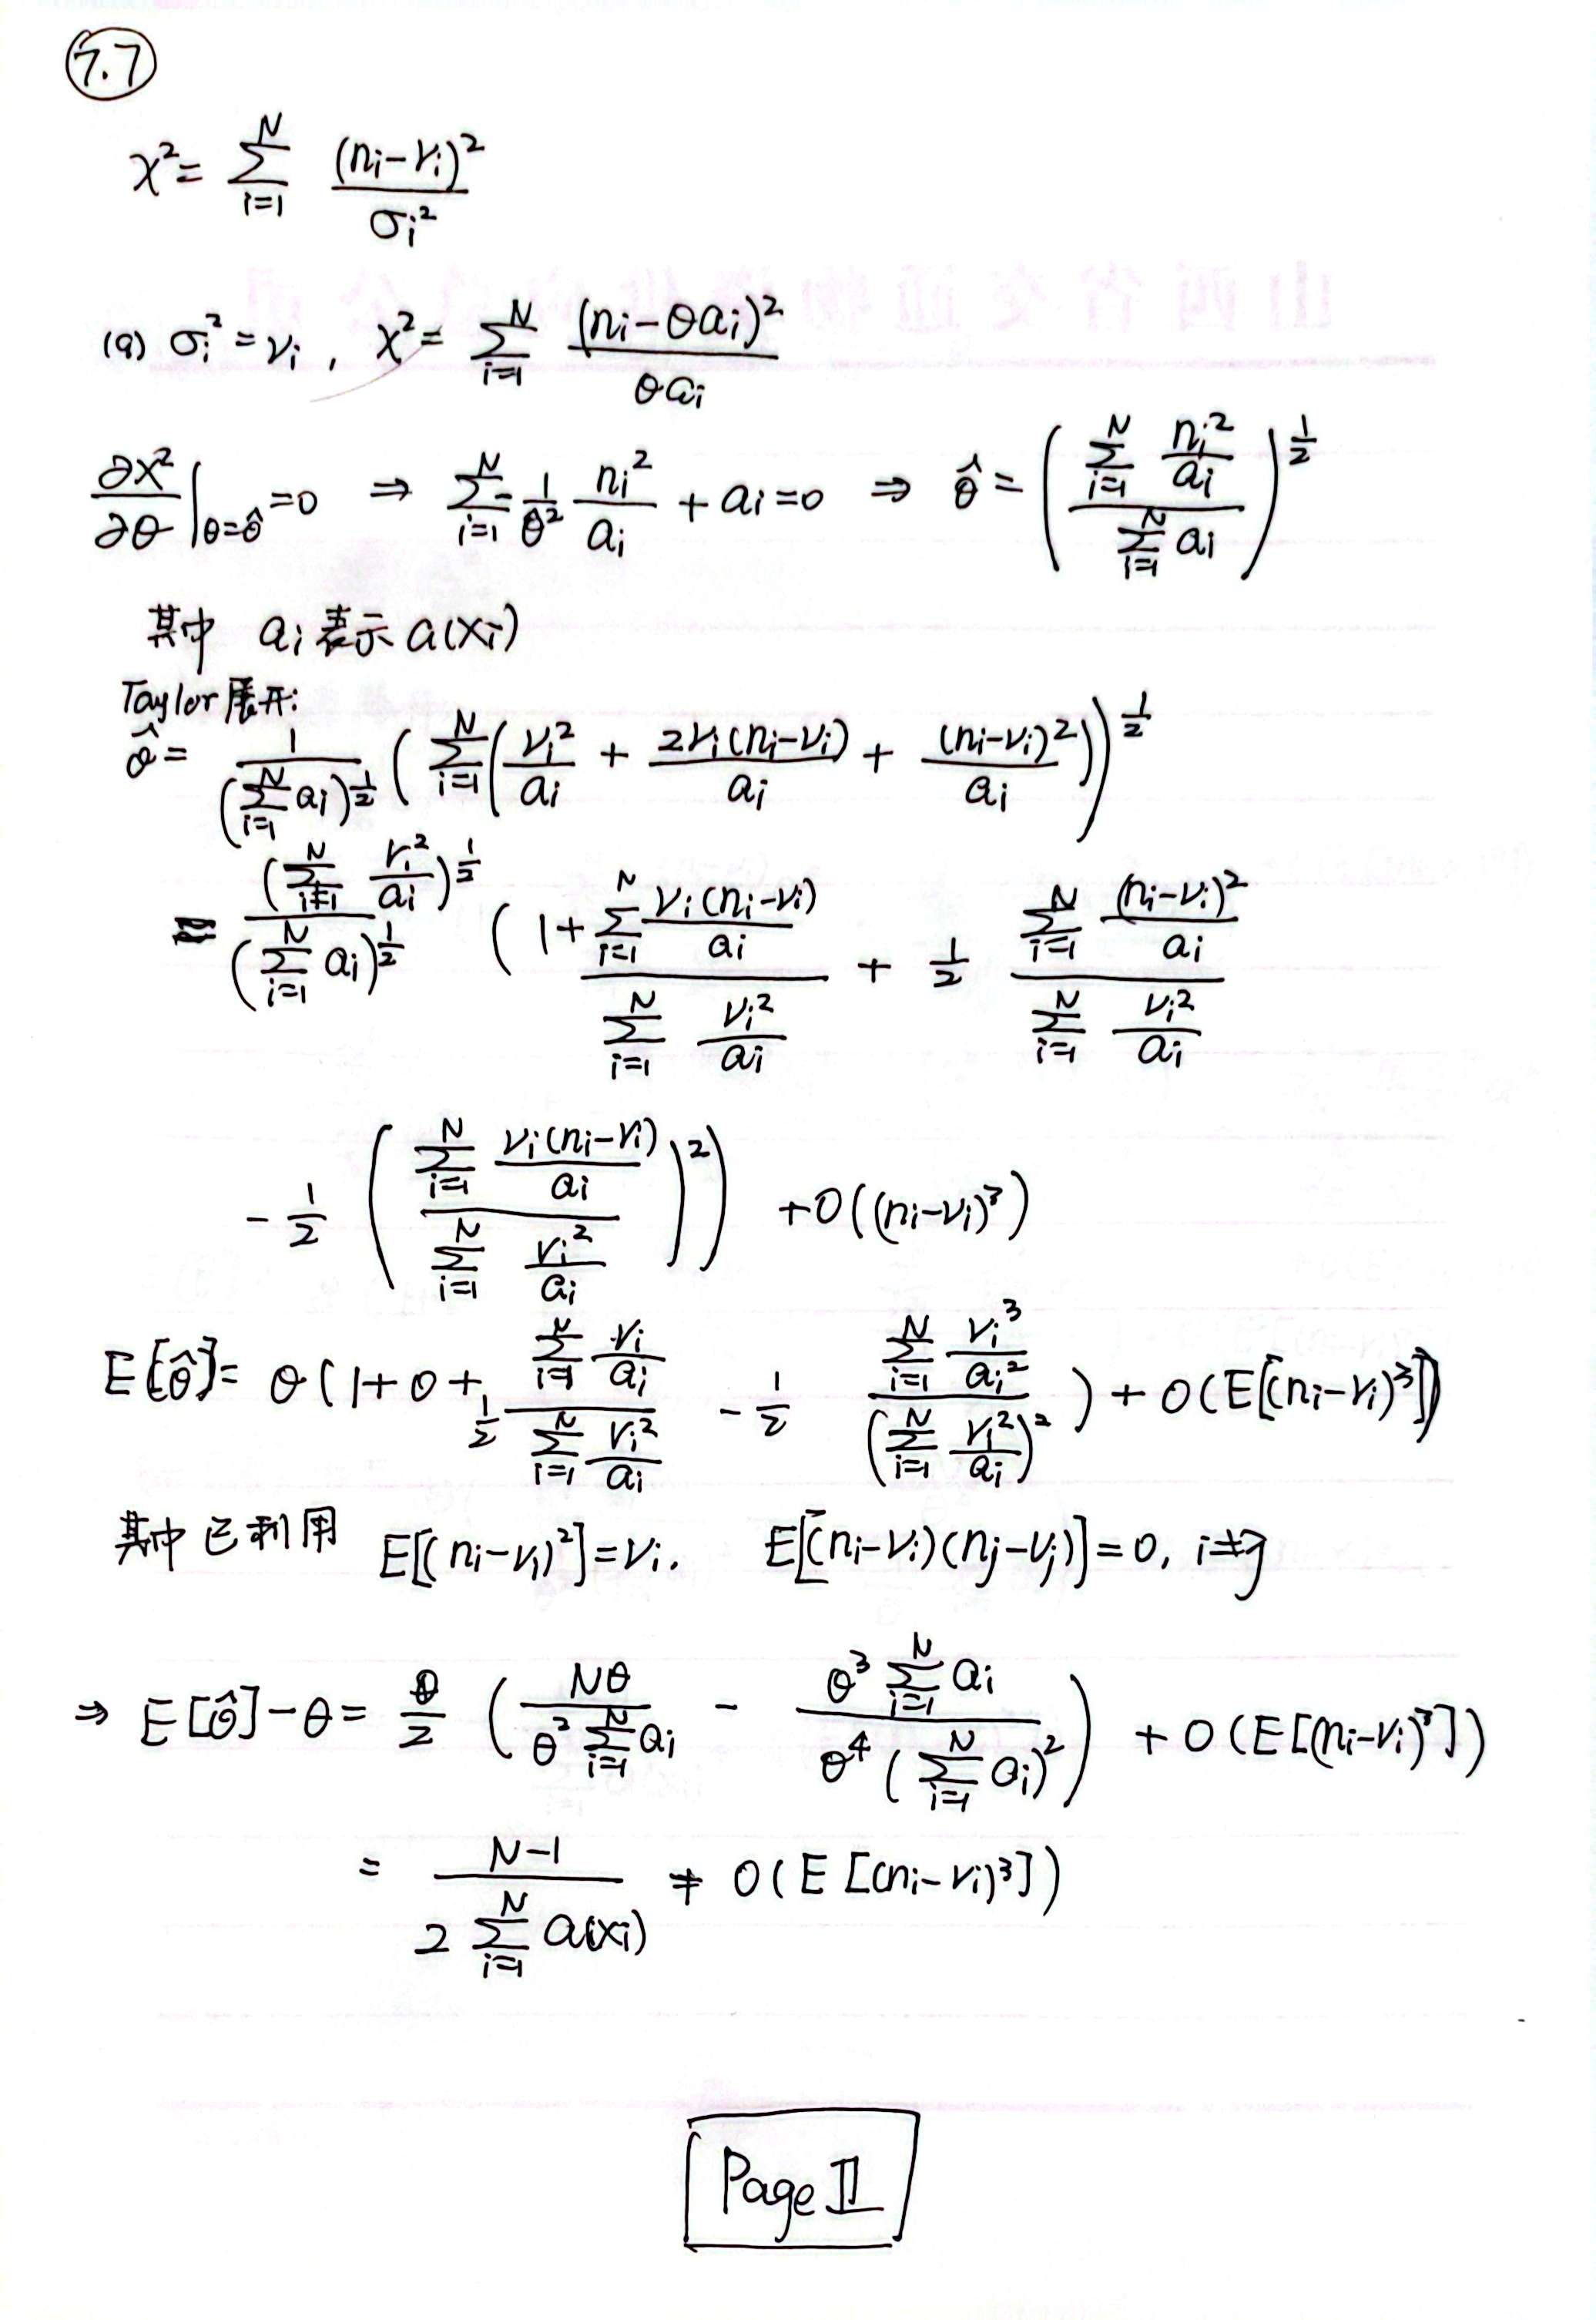 7.7
χ² = Σ_{i=1}^{N} (nᵢ-νᵢ)² / σᵢ²
(a) σᵢ² = νᵢ , χ² = Σ_{i=1}^{N} (nᵢ-θaᵢ)² / θaᵢ
∂χ²/∂θ |_{θ=θ̂} = 0 ⇒ Σ_{i=1}^{N} - 1/θ̂² nᵢ²/aᵢ + aᵢ = 0 ⇒ θ̂ = ( Σ_{i=1}^{N} nᵢ²/aᵢ / Σ_{i=1}^{N} aᵢ )^{1/2}
其中 aᵢ 表示 a(xᵢ)
Taylor展开:
θ̂ = 1/(Σ_{i=1}^{N} aᵢ)^{1/2} ( Σ_{i=1}^{N} ( νᵢ²/aᵢ + 2νᵢ(nᵢ-νᵢ)/aᵢ + (nᵢ-νᵢ)²/aᵢ ) )^{1/2}
= (Σ_{i=1}^{N} νᵢ²/aᵢ)^{1/2} / (Σ_{i=1}^{N} aᵢ)^{1/2} ( 1 + Σ_{i=1}^{N} νᵢ(nᵢ-νᵢ)/aᵢ / Σ_{i=1}^{N} νᵢ²/aᵢ + 1/2 Σ_{i=1}^{N} (nᵢ-νᵢ)²/aᵢ / Σ_{i=1}^{N} νᵢ²/aᵢ
- 1/2 ( Σ_{i=1}^{N} νᵢ(nᵢ-νᵢ)/aᵢ / Σ_{i=1}^{N} νᵢ²/aᵢ )² ) + O((nᵢ-νᵢ)³)
E[θ̂] = θ ( 1 + 0 + 1/2 Σ_{i=1}^{N} νᵢ/aᵢ / Σ_{i=1}^{N} νᵢ²/aᵢ - 1/2 Σ_{i=1}^{N} νᵢ³/aᵢ² / (Σ_{i=1}^{N} νᵢ²/aᵢ)² ) + O(E[(nᵢ-νᵢ)³])
其中已利用 E[(nᵢ-νᵢ)²] = νᵢ. E[(nᵢ-νᵢ)(nⱼ-νⱼ)] = 0, i≠j
⇒ E[θ̂] - θ = θ/2 ( Nθ / θ² Σ_{i=1}^{N} aᵢ - θ³ Σ_{i=1}^{N} aᵢ / θ⁴ (Σ_{i=1}^{N} aᵢ)² ) + O(E[(nᵢ-νᵢ)³])
= N-1 / 2 Σ_{i=1}^{N} a(xᵢ) + O(E[(nᵢ-νᵢ)³])
Page II